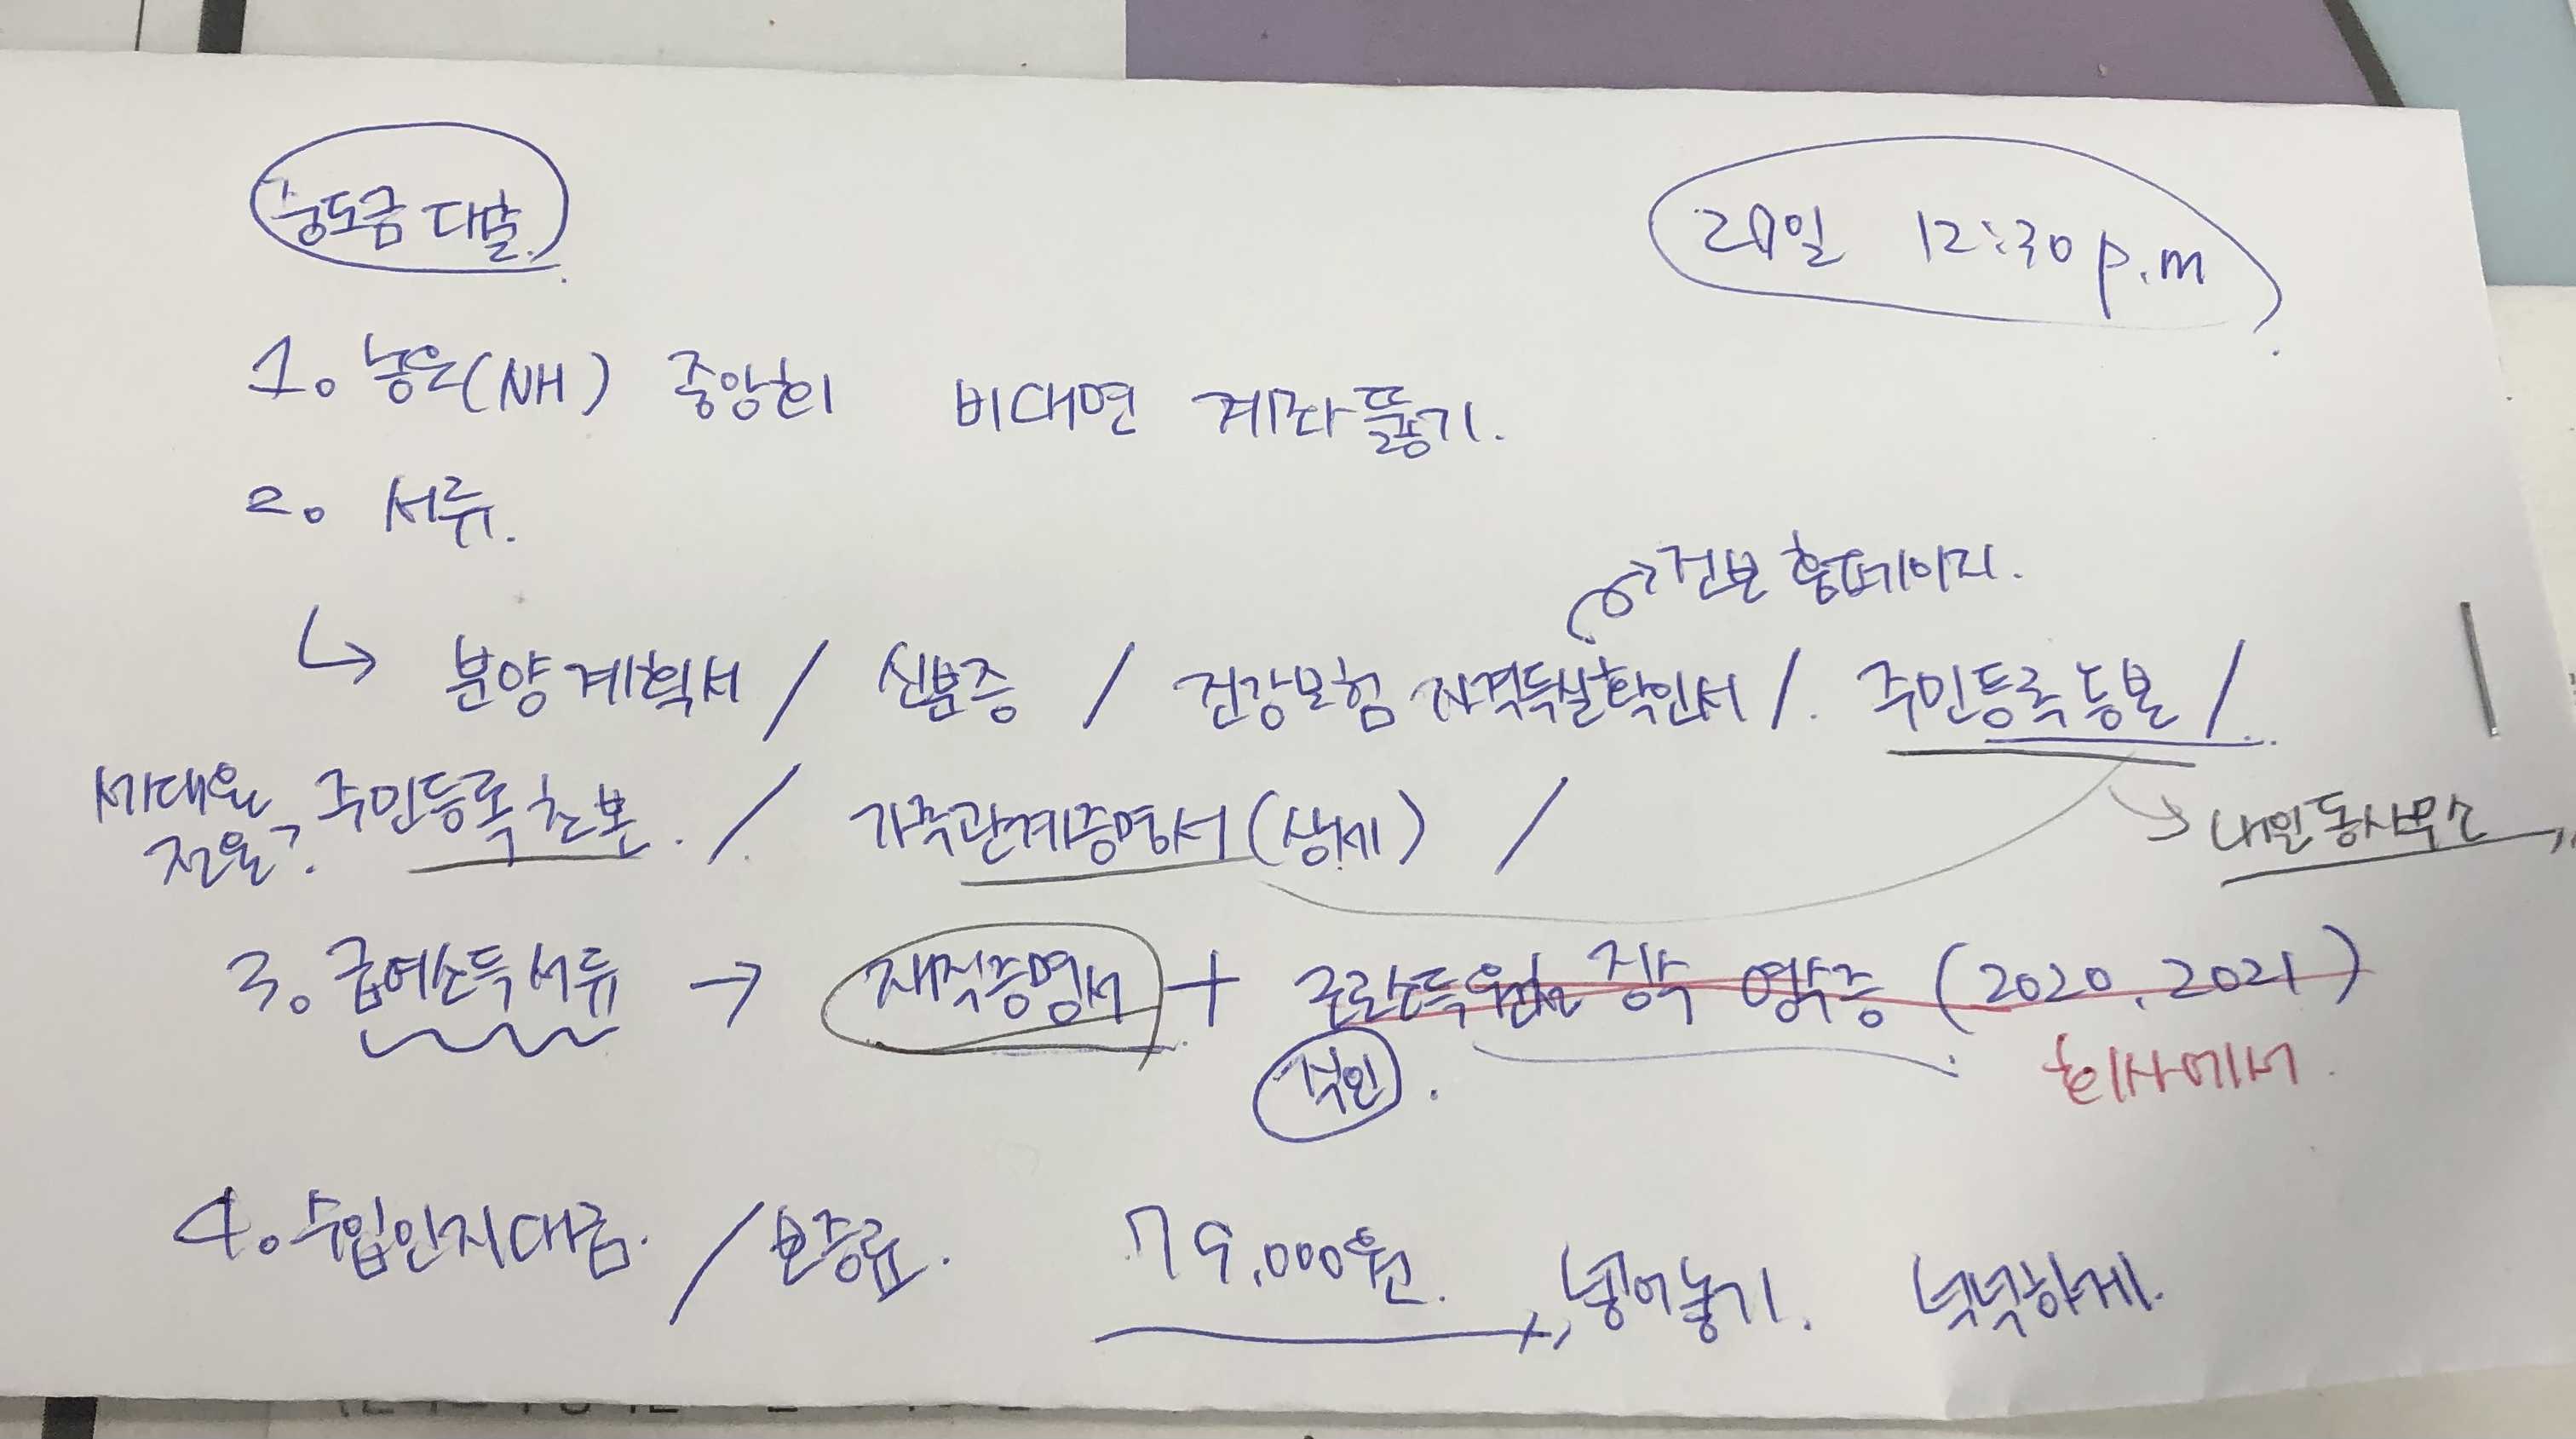 중도금 대출.
29일 12:30 p.m
1. 농은(NH) 중앙회 비대면 계좌 뚫기.
2. 서류.
건보 홈페이지.
↳ 분양계획서 / 신분증 / 건강보험 자격득실확인서 /. 주민등록등본 /.
세대원 전원?. 주민등록초본. / 가족관계증명서 (상세) /
→ 내일 동사무소
3. 급여소득서류 → 재직증명서 + 근로소득원천징수 영수증 (2020, 2021)
직인. 회사에서.
4. 수입인지대금. / 보증료. 79,000원. 넣어놓기. 넉넉하게.